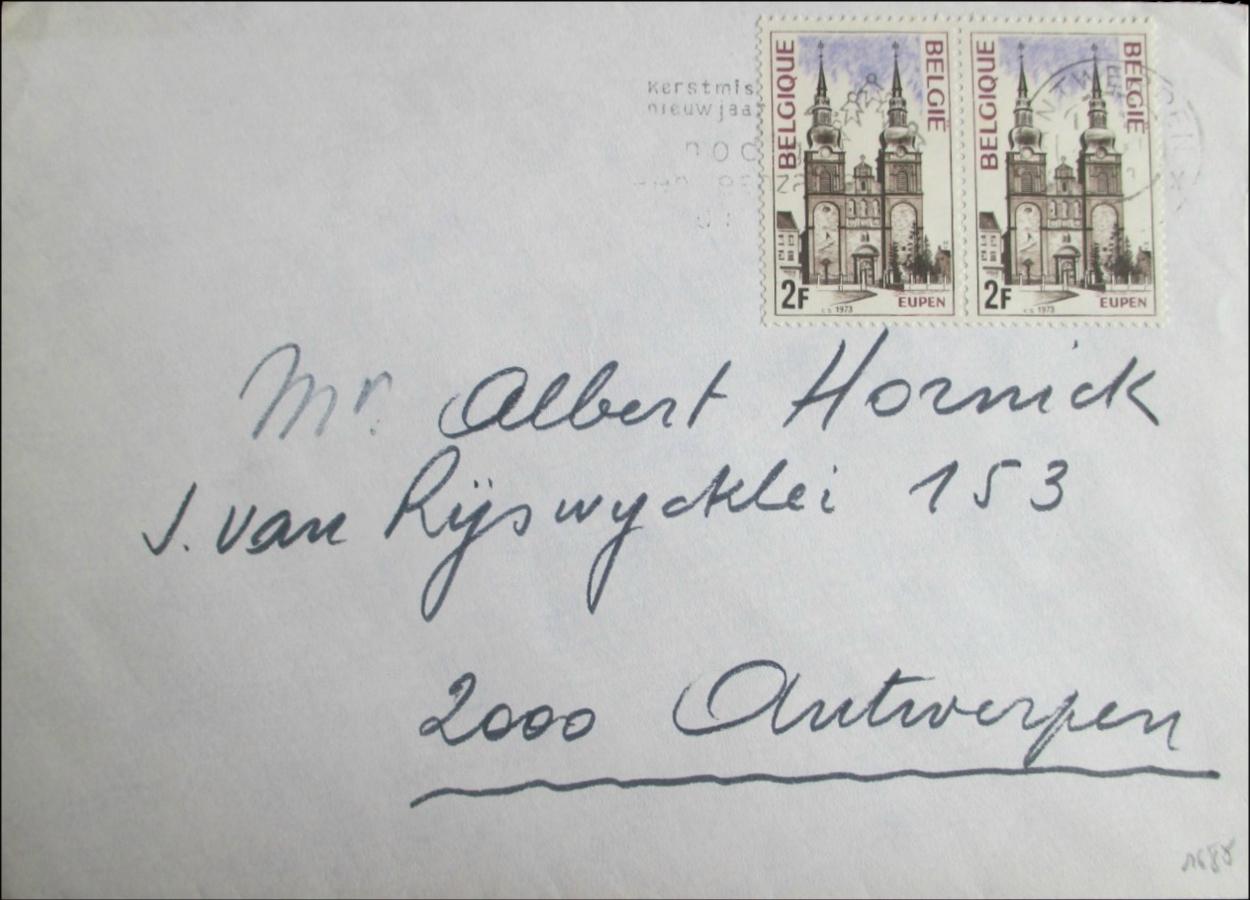 BELGIQUE BELGIË
2F EUPEN
1973
BELGIQUE BELGIË
2F EUPEN
1973
kerstmis
nieuwjaa
Mr. Albert Hornick
J. van Rÿswycklei 153
2000 Antwerpen